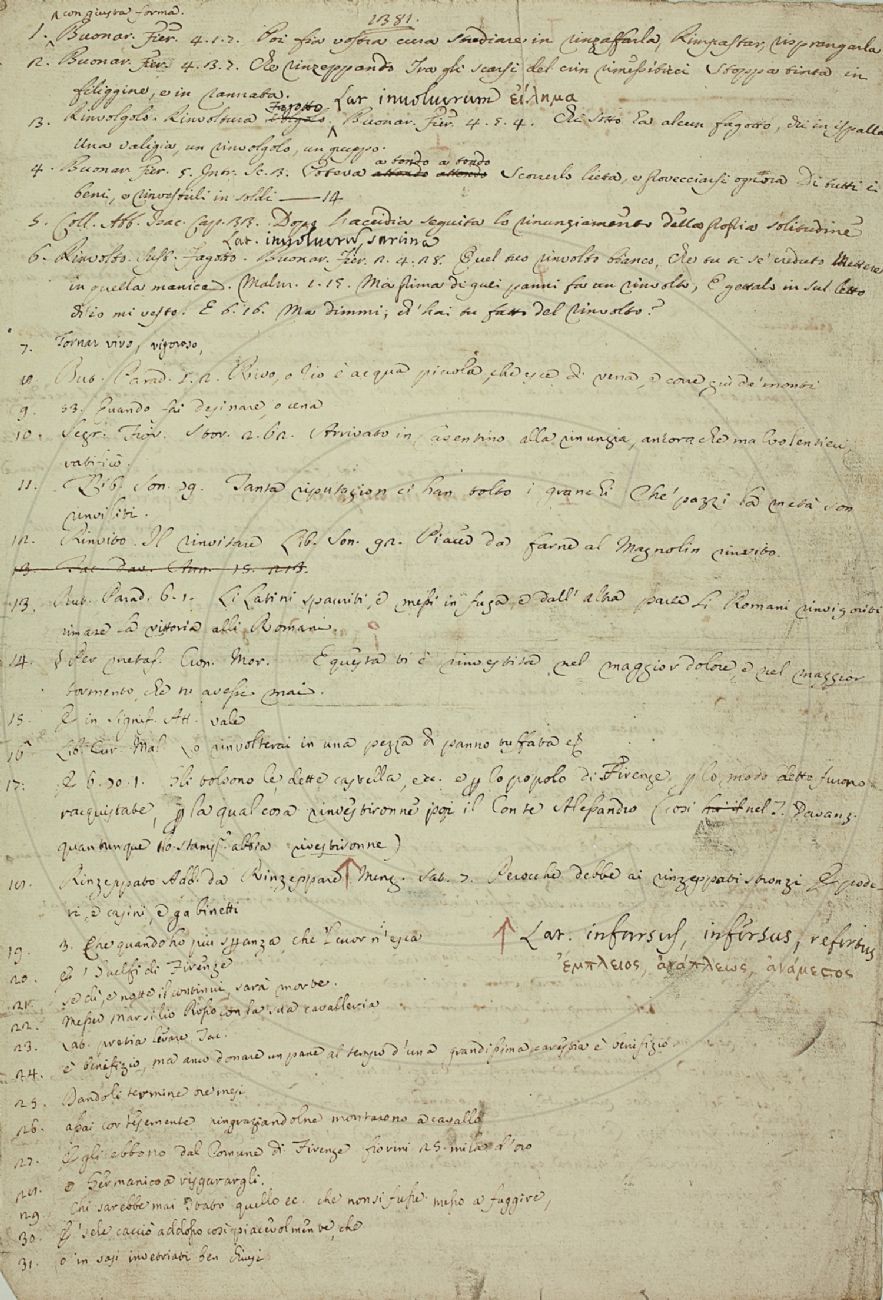 1381.
con giusta forma.
1. Buonar. Fier. 4. 1. 7. Poi sia vostra cura studiare in rinzaffarla, Rimpastar, risprangarla
2. Buonar. Fier. 4. 13. 7. Che rinzeppando tra gli scarsi del crin stoppa tinta in
filiggine, o in cannata.
Lat. involucrum εἴλημα
3. Rinvolgolo. Rinvoltura Fagotto, Buonar. Fier. 4. 5. 4. Chi sotto ha alcun fagotto, chi in ispalla
Una valigia, un rinvolgolo, un gruppo.
4. Buonar. Fier. 5. Intr. Sc. 3. Poteva a tondo a tondo Scorrerlo lieta, e di tutti i
beni, e rinvestirli in soldi — 14
5. Coll. Abb. Isac. Cap. 33. Dopo l'accidia seguita lo rinunziamento della solitudine
Lat. involucrum, sarcina
6. Rinvolto. Sust. Fagotto. Buonar. Fier. 2. 4. 28. Quel tuo rinvolto bianco, che tu ti se' veduto Mettere
in quella manica. Malm. 1. 15. Ma prima di quei panni fa un rinvolto, E gettalo in sul letto
E 6. 16. Ma dimmi, ch' hai tu fatto del rinvolto?
7. Tornar vivo, vigoroso,
8. But. Parad. Rivo, o rio è acqua piccola, che esce di vena, e corre giù de' monti
9. 33. Quando fai desinare, o cena
10. Segr. Fior. Stor. 2. 62. Arrivato in Casentino alla rinunzia, ancora che malvolentieri,
ratificò.
11. Lib. Son. 79. Tanta riputazion ci han tolto i granchi Che' pazzi la metà son
rinviliti.
12. Rinvito. Il rinvitare Lib. Son. 92. Piacer da farne al Magnolin rinvito.
13. Tac. Dav. Ann. 15. 213.
13. But. Parad. 6. 1. Li Latini spauriti, e messi in fuga, e dall' altra parte Li Romani rinvigoriti
rimase la vittoria alli Romani.
14. § Per metaf. Con. Mor. E questa ti è rinvestita nel maggior dolore, e nel maggior
tormento, che tu avessi mai.
15. E in signif. Att. vale
16. Lib. Cur. Mal. Lo rinvolterai in una pezza di panno tuffata ec.
17. E 6. 30. 1. Gli tolsono le dette castella, ecc. e p lo popolo di Firenze, p lo modo detto furono
racquistate, p la qual cosa rinvestironne poi il Conte Alessandro (così nel T. Davanz.
quantunque lo stamp. abbia rivestironne)
18. Rinzeppato Add. da Rinzeppare Menz. Sat. 7. Perocchè debbe ai rinzeppati stronzi E
ri, e casini, e gabinetti
↑ Lat. infarsus, infersus, refertus
ἔμπλειος, ἀνάπλεως, ἀνάμεστος
19. 3. Che quando ho più speranza, che 'l cuor n' esca
20. E i Guelfi di Firenze
21. se dì, e notte il continui, sarà morte.
22. Messer Marsilio Rosso con la sua cavalleria
23. Lab. pretia levare Tac.
24. è benefizio, ma anco donare un pane al tempo d' una grandissima carestia è benefizio
25. Dandoli termine tre mesi
26. assai cortesemente ringraziandolne montarono a cavallo
27. E gli ebbono dal Comune di Firenze fiorini 25. mila d' oro
28. o Germanico a risguarargli.
29. Chi sarebbe mai stato quello ec. che non si fusse messo a fuggire,
30. E' se le cacciò addosso così piacevolmente, che
31. o in vasi invetriati ben chiusi